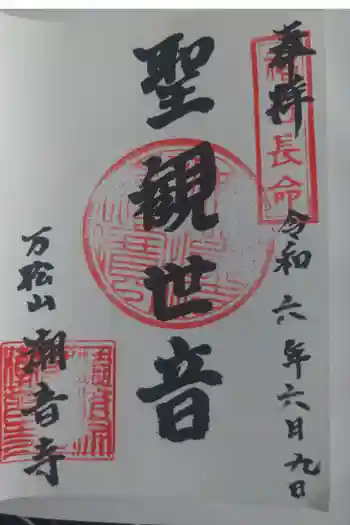 奉拝
令和六年六月九日
聖観世音
万松山
潮音寺
長命